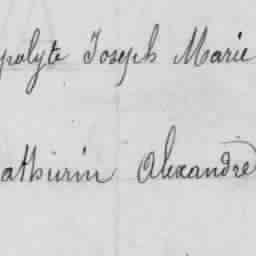 ypolyte Joseph Marie
athurin Alexandre